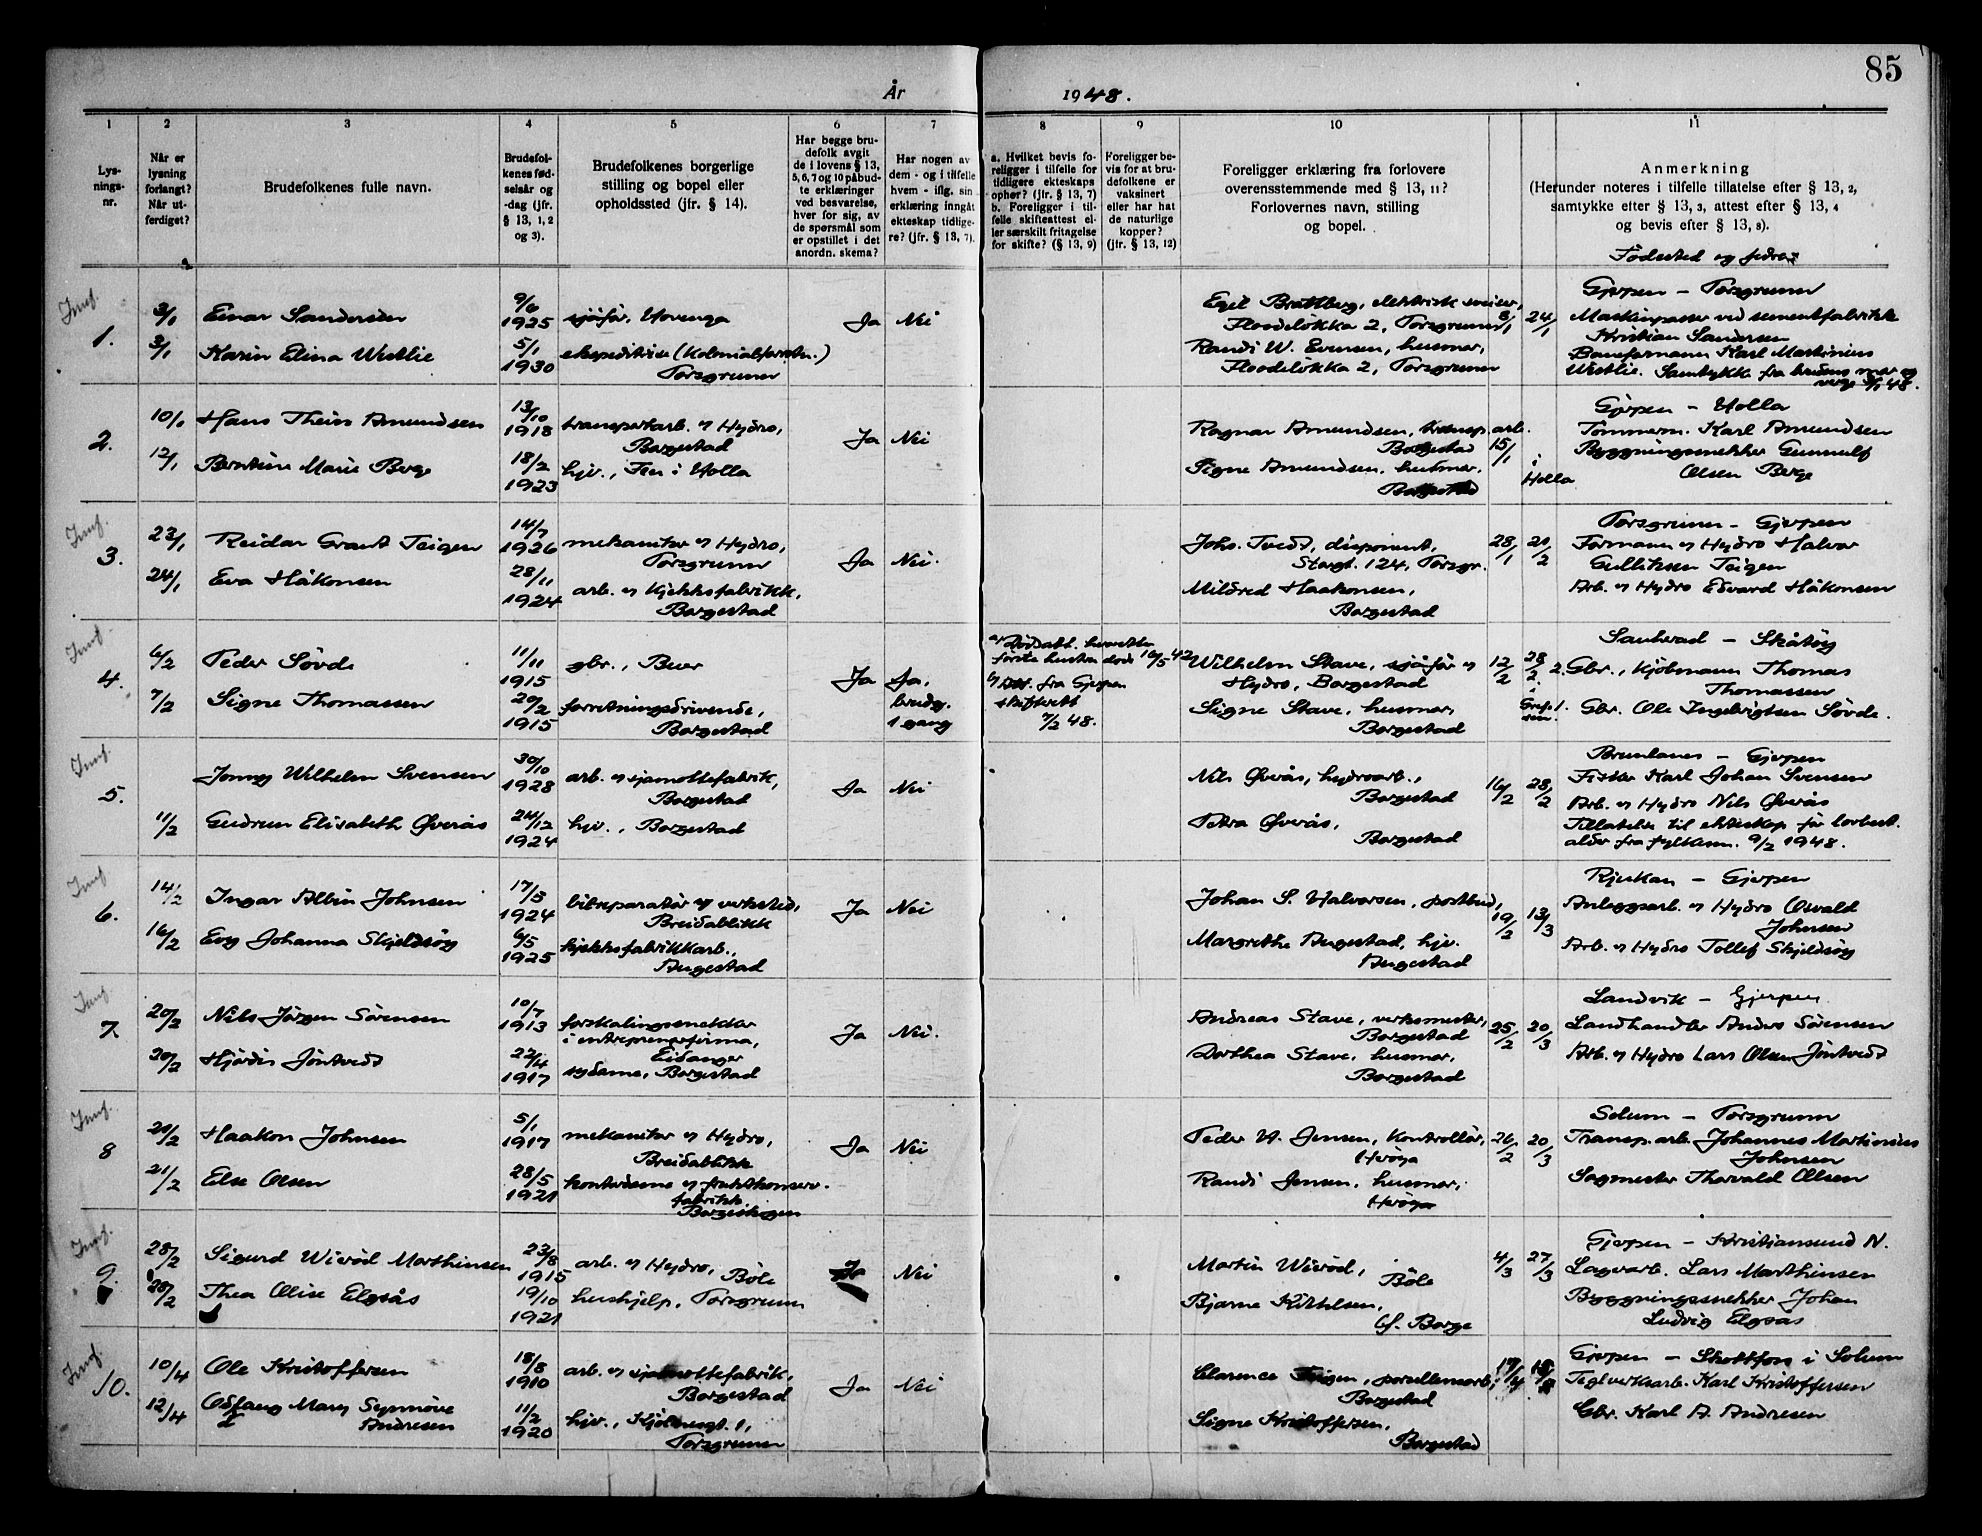 85
År 1948.
1
2
3
4
5
6
7
8
9
10
11
Lys-
nings-
nr.
Når er
lysning
forlangt?
Når ut-
ferdiget?
Brudefolkenes fulle navn.
Brudefol-
kenes fød-
selsår og
-dag (jfr.
§ 13, 1, 2
og 3).
Brudefolkenes borgerlige
stilling og bopel eller
opholdssted (jfr. § 14).
Har begge bru-
defolk avgit
de i lovens § 13,
5, 6, 7 og 10 påbud-
te erklæringer
ved besvarelse,
hver for sig, av
de spørsmål som
er opstillet i det
anordn. skema?
Har nogen av
dem - og i tilfelle
hvem - iflg. sin
erklæring inngåt
ekteskap tidlige-
re? (jfr. § 13, 7).
a. Hvilket bevis fo-
religger i tilfelle for
tidligere ekteskaps
ophør? (jfr. § 13, 7)
b. Foreligger i til-
felle skifteattest el-
ler særskilt fritagelse
for skifte? (§ 13, 9)
Foreligger be-
vis for at bru-
defolkene er
vaksinert
eller har hat
de naturlige
kopper?
(jfr. § 13, 12)
Foreligger erklæring fra forlovere
overensstemmende med § 13, 11?
Forlovernes navn, stilling
og bopel.
Anmerkning
(Herunder noteres i tilfelle tillatelse efter § 13, 2,
samtykke efter § 13, 3, attest efter § 13, 4
og bevis efter § 13, 8).
Fødested og fedre:
1.
3/1 Einar Sandersen 9/6 1925 sjåfør, Hovenga
3/1 Karin Elina Westlie 5/1 1930 ekspeditrise (Kolonialforretn.)
Porsgrunn
Ja Nei
Egil Brattberg, elektrisk sveiser,
Floodeløkka 2, Porsgrunn 8/1 24/1
Randi W. Evensen, husmor,
Floodeløkka 2, Porsgrunn
Gjerpen - Porsgrunn
Maskinpasser ved sementfabrikk
Kristian Sandersen
Baneformann Karl Martinius
Westlie. Samtykke fra brudens mor og
verge 3/1 48.
2.
10/1 Hans Thein Amundsen 13/10 1918 transportarb. v Hydro,
Borgestad
12/1 Berntine Marie Berge 18/2 1923 hjv., Fen i Holla
Ja Nei
Ragnar Amundsen, transp. arb.
Borgestad 15/1
Signe Amundsen, husmor,
Borgestad
i
Holla
Gjerpen - Holla
Tømmerm. Karl Amundsen
Byggningssnekker Gunnulf
Olsen Berge
3.
23/1 Reidar Grant Teigen 14/7 1926 mekaniker v Hydro,
Porsgrunn
24/1 Eva Håkonsen 28/11 1924 arb. v kjeksfabrikk,
Borgestad
Ja Nei.
Johs. Tvedt, disponent,
Storgt. 124, Porsgr. 28/1 21/2
Mildred Haakonsen,
Borgestad
Porsgrunn - Gjerpen
Formann v Hydro Halvor
Gulliksen Teigen
Arb. v Hydro Edvard Håkonsen
4.
6/2 Peder Sövde 11/11 1915 gbr., Bær
7/2 Signe Thomassen 20/2 1915 forretningsdrivende,
Borgestad
Ja Ja,
brudg.
1 gang
første hustru døde 16/5 42
fra Gjerpen
skifterett
7/2 48.
Wilhelm Stave, sjåfør v
Hydro, Borgestad 12/2
Signe Stave, husmor,
Borgestad
28/2
i
Sauherad - Skåtöy
Gbr., Kjöbmann Thomas
Thomassen
Gbr. Ole Ingebrigtsen Sövde.
5.
Jonny Wilhelm Svensen 30/10 1928 arb. v sjamottefabrik,
Borgestad
11/2 Gudrun Elisabeth Øverås 24/12 1924 hjv., Borgestad
Ja Nei
Nils Øverås, hydroarb.,
Borgestad 16/2 28/2
Petra Øverås,
Borgestad
Brunlanes - Gjerpen
Fisker Karl Johan Svensen
Arb. v Hydro Nils Øverås
Tillatelse til ekteskap før lovbest.
alder fra fylkesm. 9/2 1948.
6.
14/2 Ingar Albin Johnsen 17/3 1924 bilreparatør v verksted,
Breidablikk
16/2 Evy Johanna Skjeldsöy 6/5 1925 kjeksfabrikkarb.,
Augestad
Ja Nei
Johan S. Halvorsen, postbud,
19/2 13/3
Margrethe Augestad, hjv.
Augestad
Rjukan - Gjerpen
Anleggsarb. v Hydro Osvald
Johnsen
Arb. v Hydro Tollef Skjeldsöy
7.
20/2 Nils Jörgen Sörensen 10/7 1913 forskalingssnekker
i entreprenørfirma,
Eidanger
20/2 Hjördis Jöntvedt 22/4 1917 sydame, Borgestad
Ja Nei.
Andreas Stave, verksmester,
Borgestad 25/2 20/3
Dorthea Stave, husmor,
Borgestad
Landvik - Gjerpen
Landhandler Anders Sörensen
Arb. v Hydro Lars Olsen Jöntvedt
8
21/2 Haakon Johnsen 5/1 1917 mekaniker v Hydro,
Breidablikk
21/2 Else Olsen 28/5 1921 kontordame v fruktkonserv.
fabrikk
Borgeskogen
Ja Nei
Peder H. Jensen, Kontrollör,
Heröya 26/2 20/3
Randi Jensen, husmor,
Heröya
Solum - Porsgrunn
Transp. arb. Johannes Martinius
Johnsen
Sagmester Thorvald Olsen
9.
28/2 Sigurd Wierød Marthinsen 23/8 1915 arb. v Hydro,
Böle
28/2 Thea Olise Elgsås 19/10 1921 hushjelp, Porsgrunn
Ja Nei
Martin Wierød,
Böle 4/3 27/3
Bjarne Kittilsen,
Borge
Gjerpen - Kristiansund N.
Lagerarb. Lars Marthinsen
Byggningssnekker Johan
Ludvig Elgsås
10.
10/4 Ole Kristoffersen 18/8 1910 arb. v sjamottefabrik,
Borgestad
12/4 Oddfang Mary Synnöve
Andresen 11/2 1920 hjv., Kjölnesgt. 1,
Porsgrunn
Ja Nei
Clarence Teigen, porselensarb,
Borgestad 17/4
Signe Kristoffersen,
Borgestad
Gjerpen - Skotfoss i Solum
Teglverksarb. Karl Kristoffersen
Gbr. Karl A. Andresen